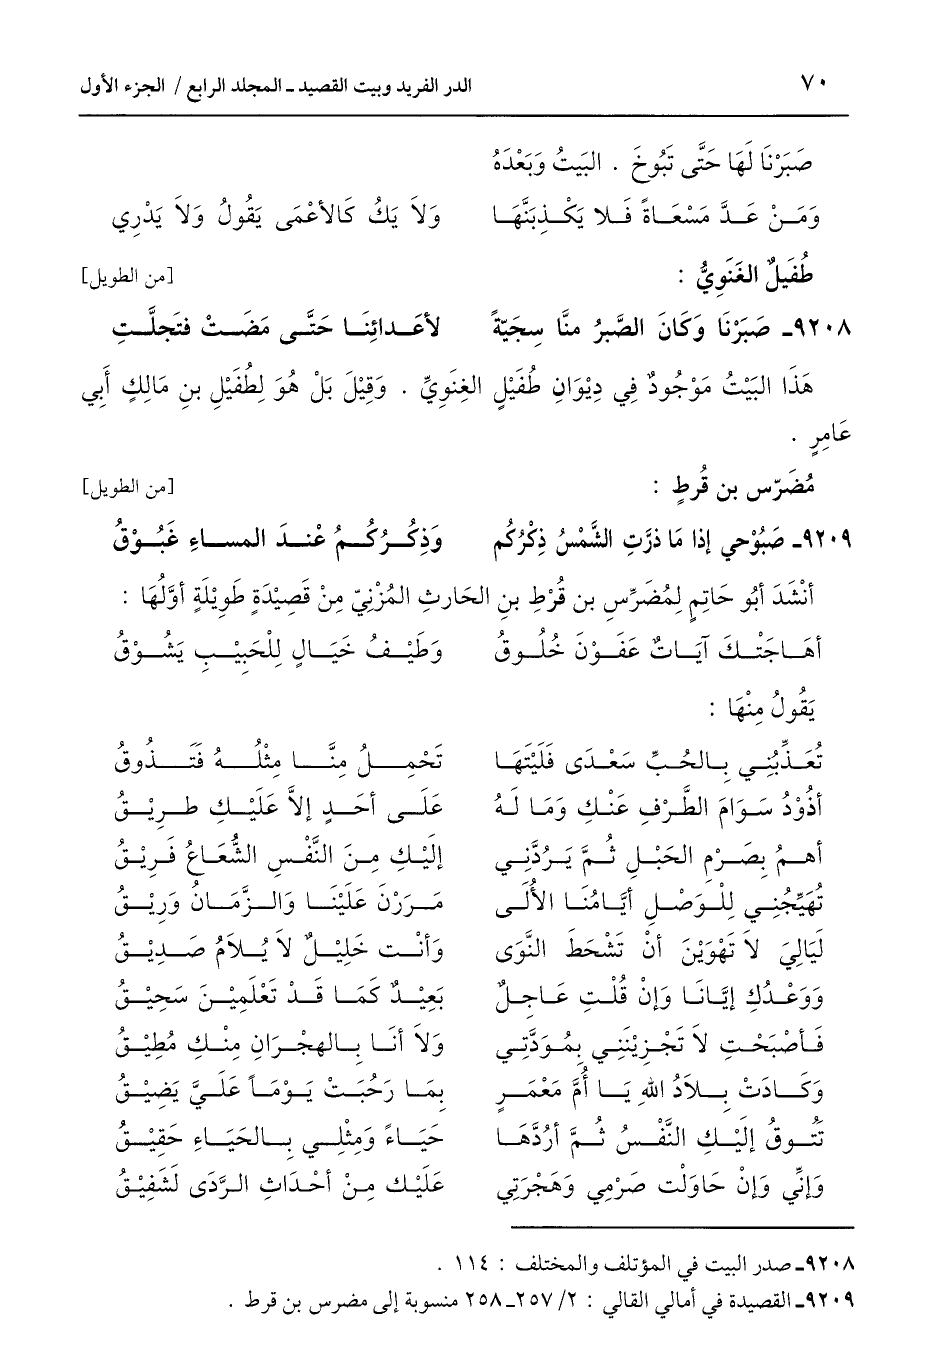 ٧٠ الدر الفريد وبيت القصيد ـ المجلد الرابع / الجزء الأول
صَبَرْنَا لَهَا حَتَّى تَبُوخَ . البَيتُ وَبَعْدَهُ
وَمَـنْ عَـدَّ مَسْعَـاةً فَـلا يَكْـذِبَنَّهَـا وَلاَ يَكُ كَالأَعْمَى يَقُولُ وَلاَ يَدْرِي
طُفَيلٌ الغَنَوِيُّ : [من الطويل]
٩٢٠٨ـ صَبَرْنَا وَكَانَ الصَّبرُ منَّا سِجَيَّةً لأعَـدائِنَـا حَتَّـى مَضَـتْ فتَجلَّـتِ
هَذَا البَيْتُ مَوْجُودٌ فِي دِيْوَانِ طُفَيْلٍ الغِنَوِيِّ . وَقِيْلَ بَلْ هُوَ لِطُفَيْلِ بنِ مَالِكٍ أَبِي
عَامِرٍ .
مُضَرّس بن قُرطٍ : [من الطويل]
٩٢٠٩ـ صَبُوْحي إذا مَا ذرَّتِ الشَّمْسُ ذِكْرُكُم وَذِكُـرُكُـمُ عْنـدَ المسـاءِ غَبُـوْقُ
أَنْشَدَ أَبُو حَاتِمٍ لِمُضَرِّسِ بن قُرْطِ بنِ الحَارثِ المُزْنِيّ مِنْ قَصِيْدَةٍ طَوِيْلَةٍ أوَّلُهَا :
أهَـاجَتْـكَ آيَـاتٌ عَفَـوْنَ خُلُـوقُ وَطَيْـفُ خَيَـالٍ لِلْحَبِيْـبِ يَشُـوْقُ
يَقُولُ مِنْهَا :
تُعَـذِّبُنِـي بِـالحُـبِّ سَعْـدَى فَلَيْتَهَـا تَحْمِـلُ مِنَّـا مِثْلُـهُ فَتَـذُوقُ
أَذُوْدُ سَـوَامَ الطَّـرْفِ عَنْـكِ وَمَـا لَـهُ عَلَـى أَحَـدٍ إِلاَّ عَلَيْـكِ طَـرِيْـقُ
أَهـمُ بِصَـرْمِ الحَبْـلِ ثُـمَّ يَـرُدَّنِـي إِلَيْـكِ مِـنَ النَّفْـسِ الشَّعَـاعُ فَـرِيْـقُ
تُهَيِّجُنِـي لِلْـوَصْـلِ أَيَّـامُنَـا الأُلَـى مَـرَرْنَ عَلَيْنَـا وَالـزَّمَـانُ وَرِيْـقُ
لَيَالِيَ لاَ تَهْوَيْنَ أَنْ تَشْحَطَ النَّوَى وَأَنْـتِ خَلِيْـلٌ لاَ يُـلاَمُ صَـدِيْـقُ
وَوَعْـدُكِ إِيَّـانَـا وَإِنْ قُلْـتِ عَـاجِـلٌ بَعِيْـدٌ كَمَـا قَـدْ تَعْلَمِيْـنَ سَحِيْـقُ
فَـأَصْبَحْـتِ لاَ تَجْـزِيْنَنِـي بِمُـوَدَّتِـي وَلاَ أَنَـا بِـالهِجْـرَانِ مِنْـكِ مُطِيْـقُ
وَكَـادَتْ بِـلاَدُ اللهِ يَـا أُمَّ مَعْمَـرٍ بِمَـا رَحُبَـتْ يَـوْمَـاً عَلَـيَّ يَضِيْـقُ
تَتُـوقُ إِلَيْـكِ النَّفْـسُ ثُـمَّ أَرُدُّهَـا حَيَـاءً وَمِثْلِـي بِـالحَيَـاءِ حَقِيْـقُ
وَإِنِّي وَإِنْ حَاوَلْتِ صَرْمِي وَهَجْرَتِي عَلَيْـكِ مِـنْ أَحْـدَاثِ الـرَّدَى لَشَفِيْـقُ
٩٢٠٨ـ صدر البيت في المؤتلف والمختلف : ١١٤ .
٩٢٠٩ـ القصيدة في أمالي القالي : ٢/ ٢٥٧ـ ٢٥٨ منسوبة إلى مضرس بن قرط .